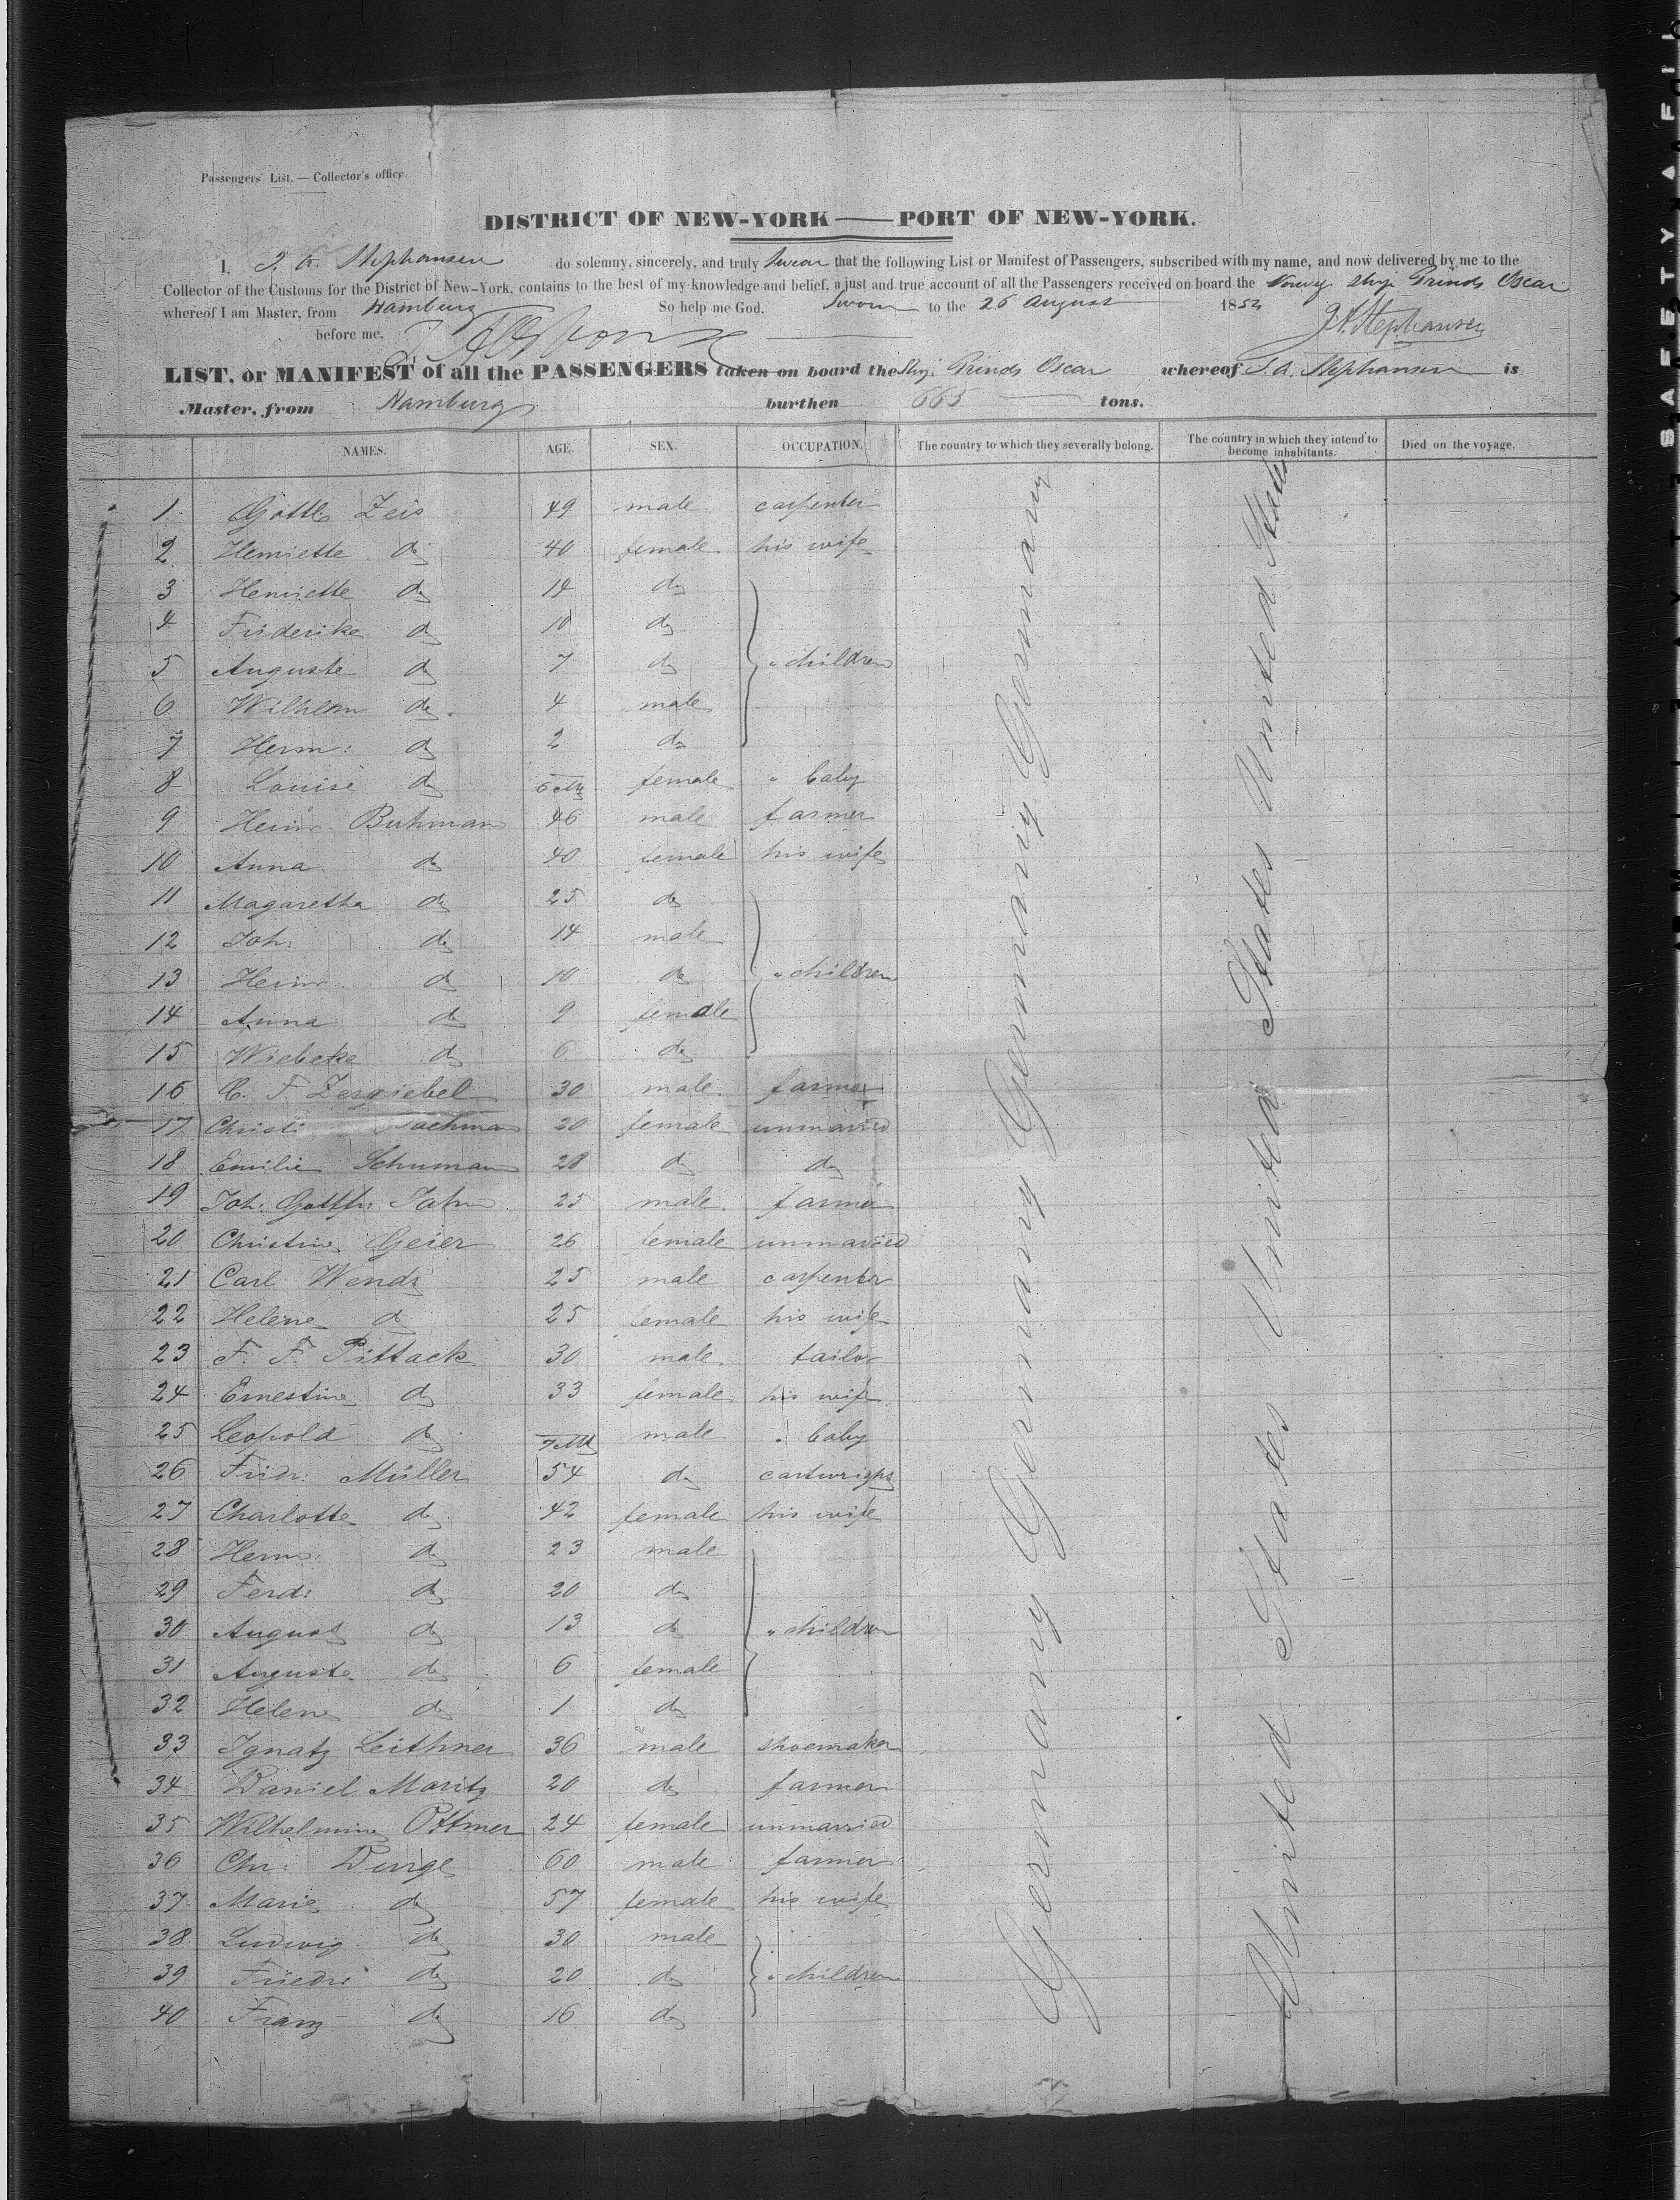 Passengers' List. — Collector's office.
DISTRICT OF NEW-YORK — PORT OF NEW-YORK.
I, Stephansen do solemny, sincerely, and truly swear that the following List or Manifest of Passengers, subscribed with my name, and now delivered by me to the
Collector of the Customs for the District of New-York, contains to the best of my knowledge and belief, a just and true account of all the Passengers received on board the Norwg Ship Prinds Oscar
whereof I am Master, from Hamburg So help me God. Sworn to the 26 August 185
before me. Stephansen
LIST, or MANIFEST of all the PASSENGERS taken on board the Ship Prinds Oscar whereof Stephansen is
Master, from Hamburg burthen 665 tons.
NAMES. AGE. SEX. OCCUPATION. The country to which they severally belong. The country in which they intend to become inhabitants. Died on the voyage.
1 Gottl. Zeis 49 male carpenter
2 Henriette do 40 female his wife
3 Henriette do 14 do
4 Friderike do 10 do
5 Auguste do 7 do " children
6 Wilhelm do 4 male
7 Herm: do 2 do
8 Louise do 6 Mt female " baby
9 Heinr. Buhmann 46 male farmer
10 Anna do 40 female his wife
11 Magaretha do 25 do
12 Joh: do 14 male
13 Heinr. do 10 do " children
14 Anna do 9 female
15 Wiebeke do 6 do
16 C. F. Zergiebel 30 male farmer
17 Christ: 20 female unmarried
18 Emilie Schumann 28 do do
19 Joh: Gottfr: Jahn 25 male farmer
20 Christine Geier 26 female unmarried
21 Carl Wendt 25 male carpenter
22 Helene do 25 female his wife
23 F. F. Pittack 30 male tailor
24 Ernestine do 33 female his wife
25 Leopold do 7 Mt male " baby
26 Fridr: Müller 54 do cartwright
27 Charlotte do 42 female his wife
28 Herm: do 23 male
29 Ferd: do 20 do
30 August do 13 do " children
31 Auguste do 6 female
32 Helene do 1 do
33 Ignatz Leithner 36 male shoemaker
34 Daniel Moritz 20 do farmer
35 Wilhelmine Ottmer 24 female unmarried
36 Chr: Durge 60 male farmer
37 Marie do 57 female his wife
38 Ludwig do 30 male
39 Friedr: do 20 do " children
40 Franz do 16 do
Germany Germany Germany Germany
United States United States United States
SAFETY